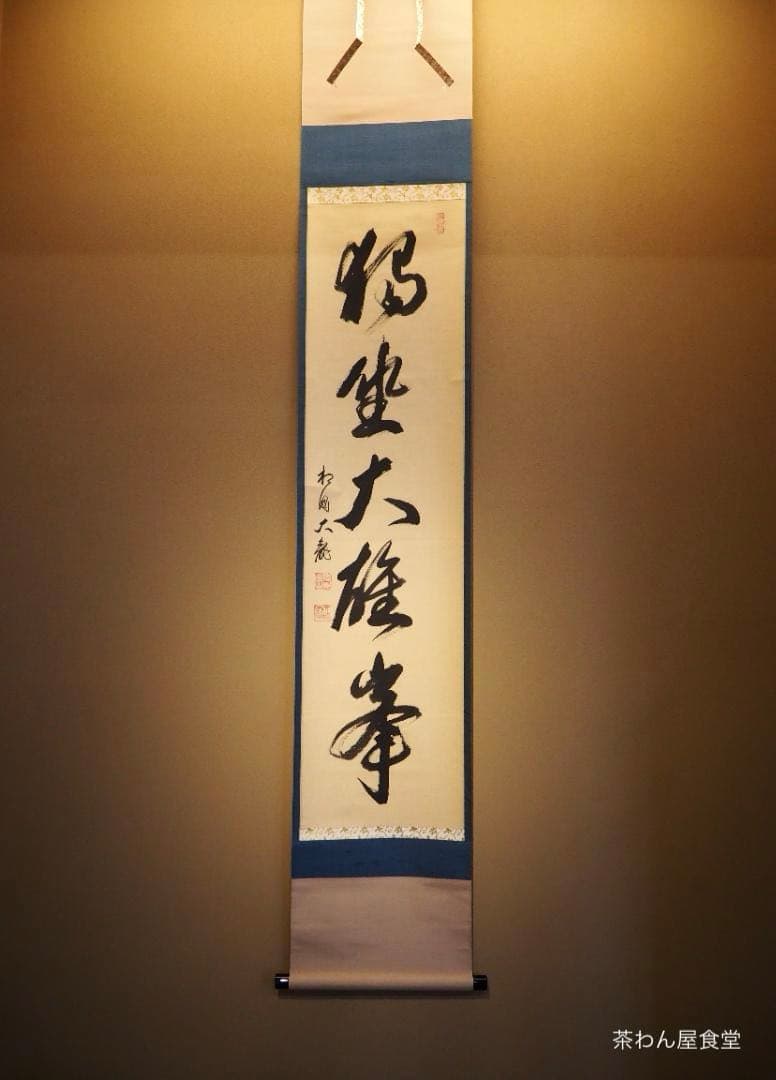 獨坐大雄峯
相国大龍
茶わん屋食堂